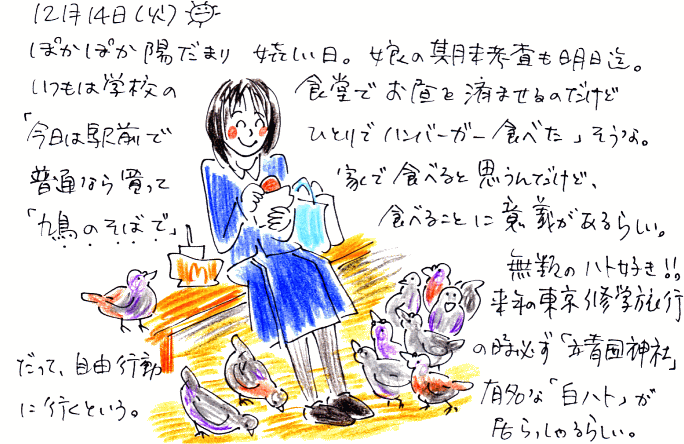 12月14日(火)
ぽかぽか陽だまり 嬉しい日。娘の期末考査も明日迄。
いつもは学校の食堂でお昼を済ませるのだけど
「今日は駅前でひとりでハンバーガー食べた」そうな。
普通なら買って家で食べると思うんだけど、
「鳩のそばで」食べることに意義があるらしい。
無類のハト好き!!
来年の東京修学旅行
の時必ず「靖国神社」
だって、自由行動
に行くという。
有名な「白ハト」が
居らっしゃるらしい。